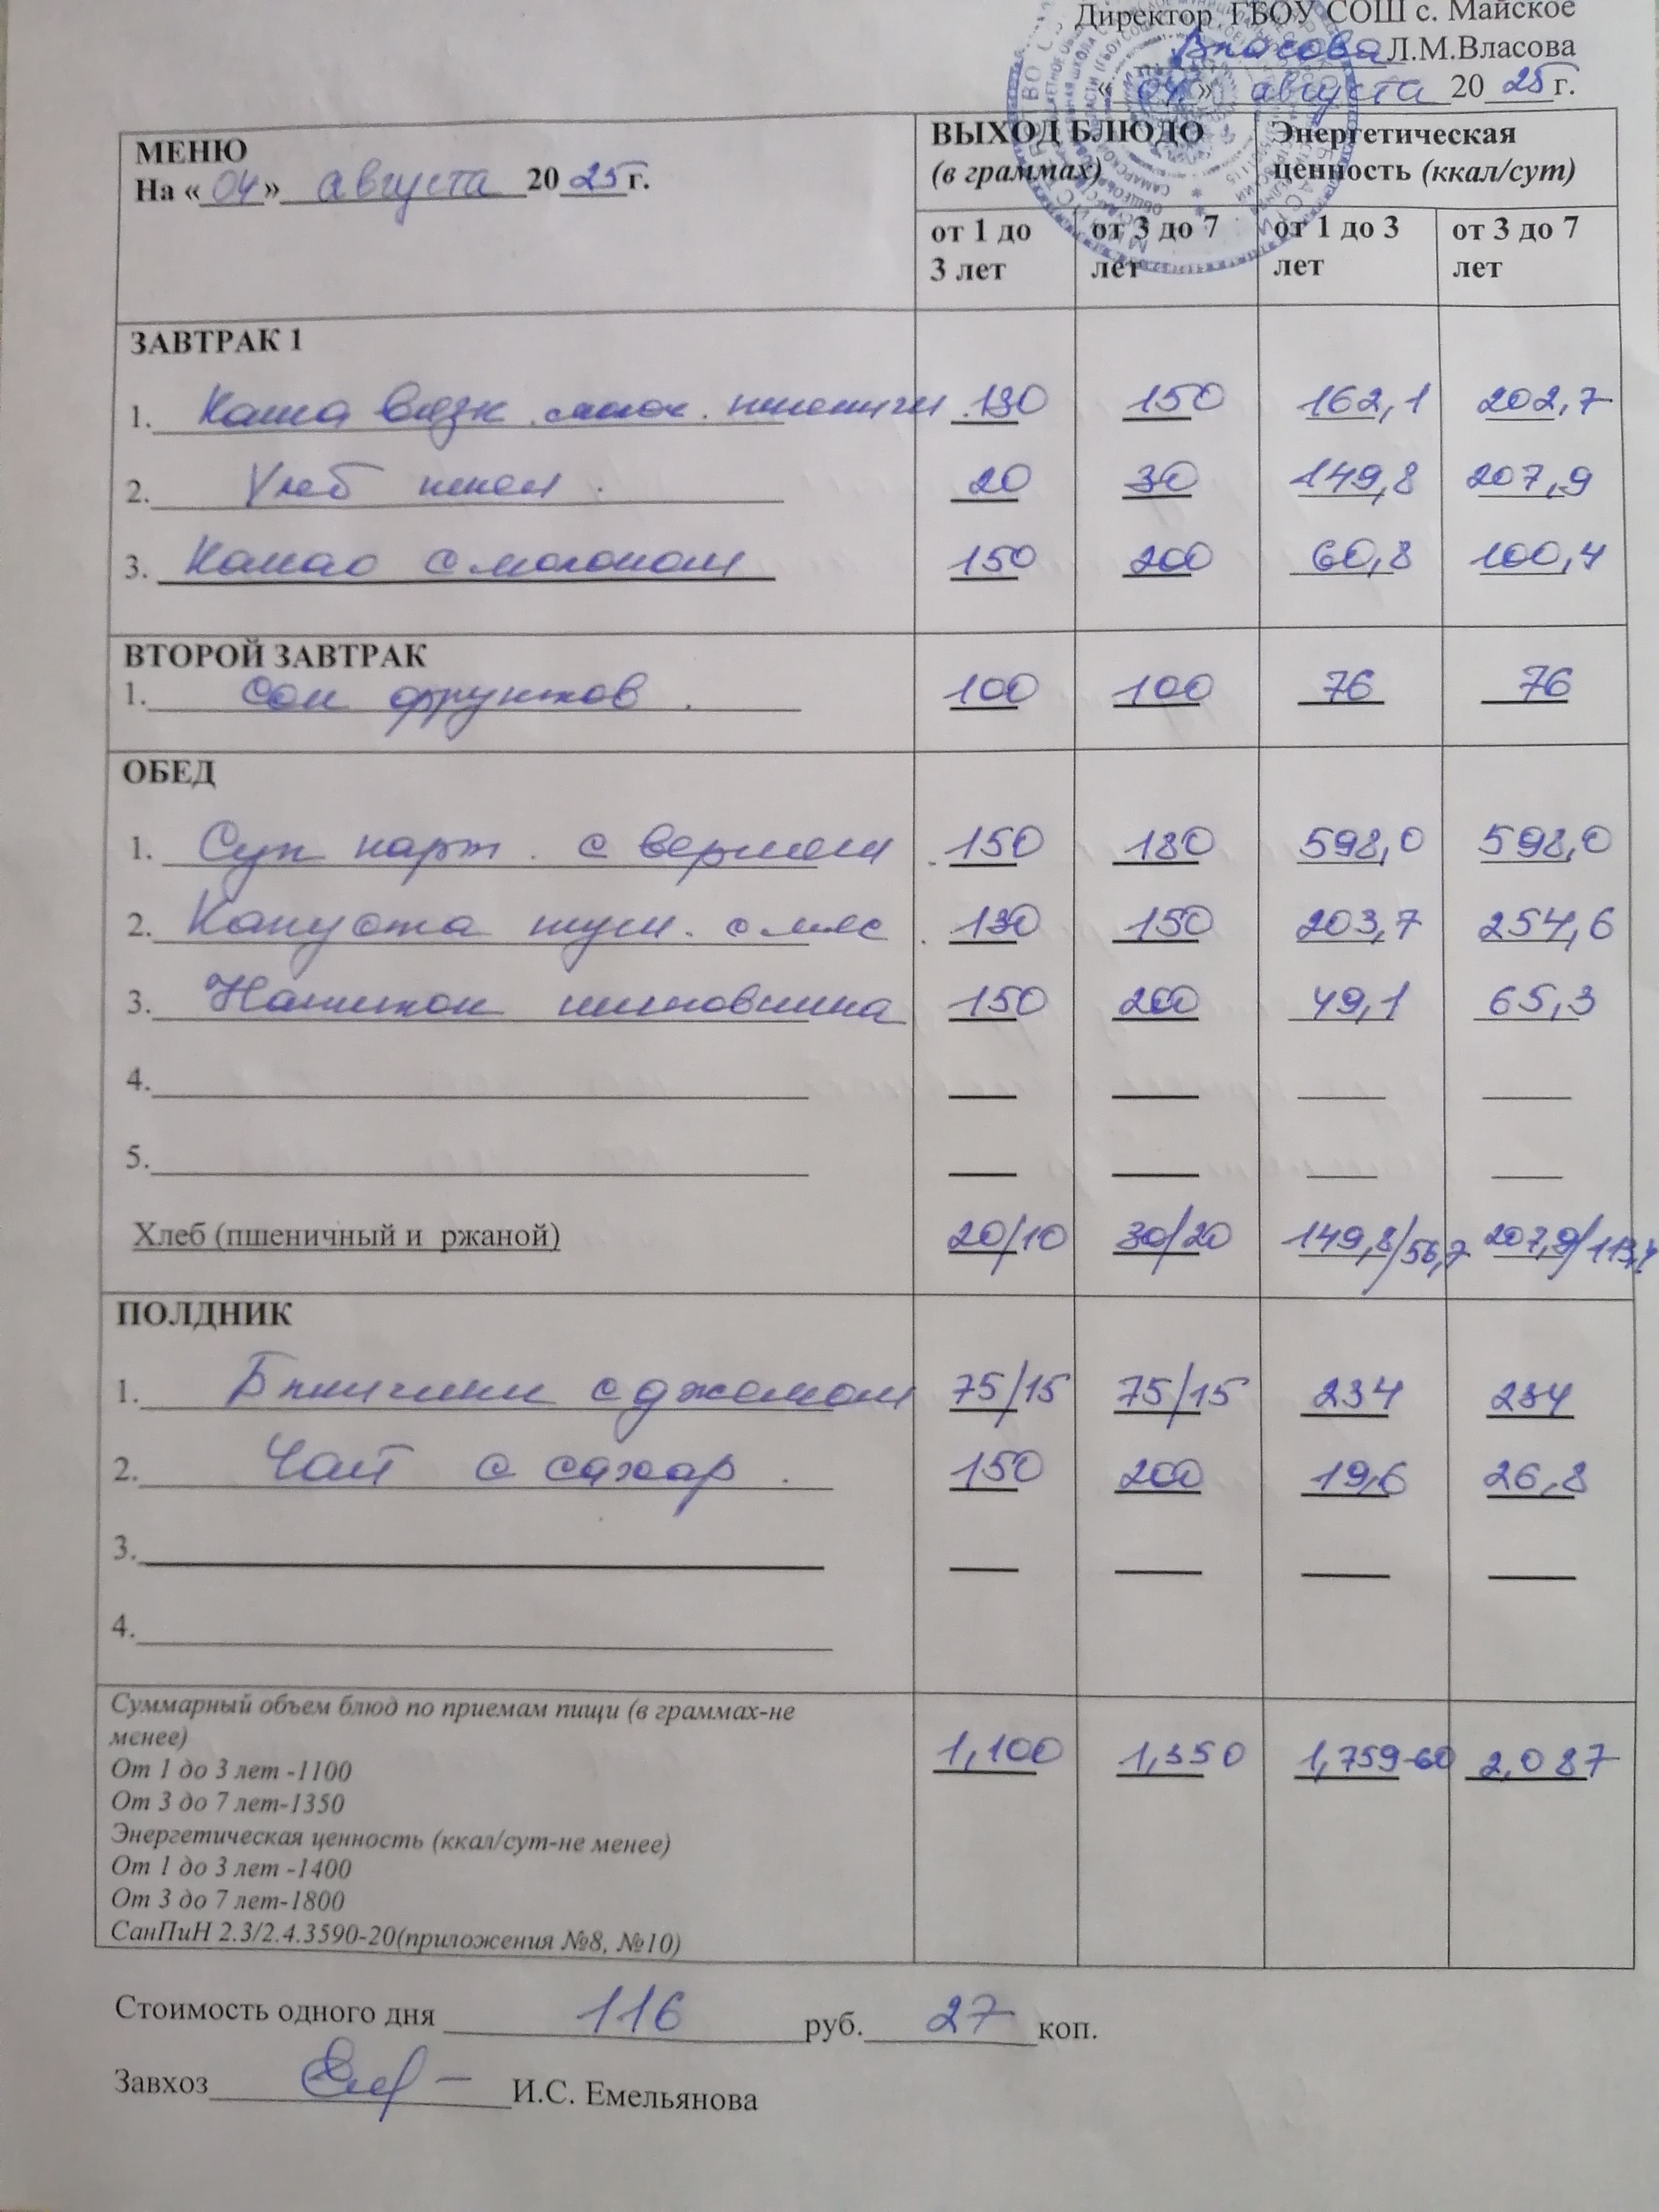 Директор ГБОУ СОШ с. Майское
Власова Л.М.Власова
«04» августа 2025г.
МЕНЮ
На «04» августа 2025г.
ВЫХОД БЛЮДО
(в граммах)
Энергетическая
ценность (ккал/сут)
от 1 до 3 лет от 3 до 7 лет от 1 до 3 лет от 3 до 7 лет
ЗАВТРАК 1
1. Каша вязк. молоч. пшеничн. 130 150 162,1 202,7
2. Хлеб пшен. 20 30 149,8 207,9
3. Какао с молоком 150 200 60,8 100,4
ВТОРОЙ ЗАВТРАК
1. Сок фруктов. 100 100 76 76
ОБЕД
1. Суп карт. с вермеш. 150 180 598,0 598,0
2. Капуста туш. с мяс. 130 150 203,7 254,6
3. Напиток шиповника 150 200 49,1 65,3
4.
5.
Хлеб (пшеничный и ржаной) 20/10 30/20 149,8/56,7 207,9/113,4
ПОЛДНИК
1. Блинчики с джемом 75/15 75/15 234 234
2. Чай с сахар. 150 200 19,6 26,8
3.
4.
Суммарный объем блюд по приемам пищи (в граммах-не
менее) 1,100 1,350 1,759-60 2,087
От 1 до 3 лет -1100
От 3 до 7 лет-1350
Энергетическая ценность (ккал/сут-не менее)
От 1 до 3 лет -1400
От 3 до 7 лет-1800
СанПиН 2.3/2.4.3590-20(приложения №8, №10)
Стоимость одного дня 116 руб. 27 коп.
Завхоз И.С. Емельянова